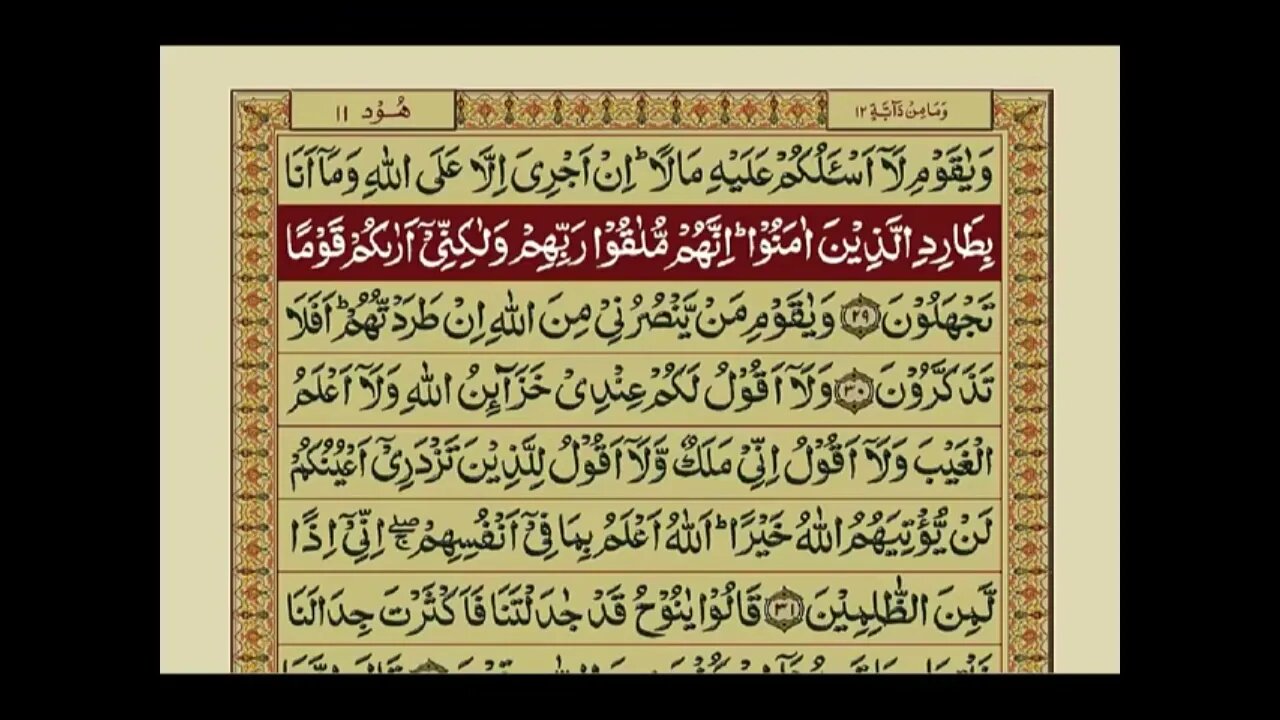 وَمَا مِنْ دَآبَّةٍ ١٢
هُوْد ١١
وَيٰقَوْمِ لَآ اَسْـَٔلُكُمْ عَلَيْهِ مَالًا ؕ اِنْ اَجْرِىَ اِلَّا عَلَى اللّٰهِ وَمَآ اَنَا
بِطَارِدِ الَّذِيْنَ اٰمَنُوْا ؕ اِنَّهُمْ مُّلٰقُوْا رَبِّهِمْ وَلٰكِنِّىْٓ اَرٰىكُمْ قَوْمًا
تَجْهَلُوْنَ ﴿۲۹﴾ وَيٰقَوْمِ مَنْ يَّنْصُرُنِىْ مِنَ اللّٰهِ اِنْ طَرَدْتُّهُمْ ؕ اَفَلَا
تَذَكَّرُوْنَ ﴿۳۰﴾ وَلَآ اَقُوْلُ لَكُمْ عِنْدِىْ خَزَآئِنُ اللّٰهِ وَلَآ اَعْلَمُ
الْغَيْبَ وَلَآ اَقُوْلُ اِنِّىْ مَلَكٌ وَّلَآ اَقُوْلُ لِلَّذِيْنَ تَزْدَرِىْٓ اَعْيُنُكُمْ
لَنْ يُّؤْتِيَهُمُ اللّٰهُ خَيْرًا ؕ اَللّٰهُ اَعْلَمُ بِمَا فِىْٓ اَنْفُسِهِمْ ۖۚ اِنِّىْٓ اِذًا
لَّمِنَ الظّٰلِمِيْنَ ﴿۳۱﴾ قَالُوْا يٰنُوْحُ قَدْ جٰدَلْتَنَا فَاَكْثَرْتَ جِدَالَنَا